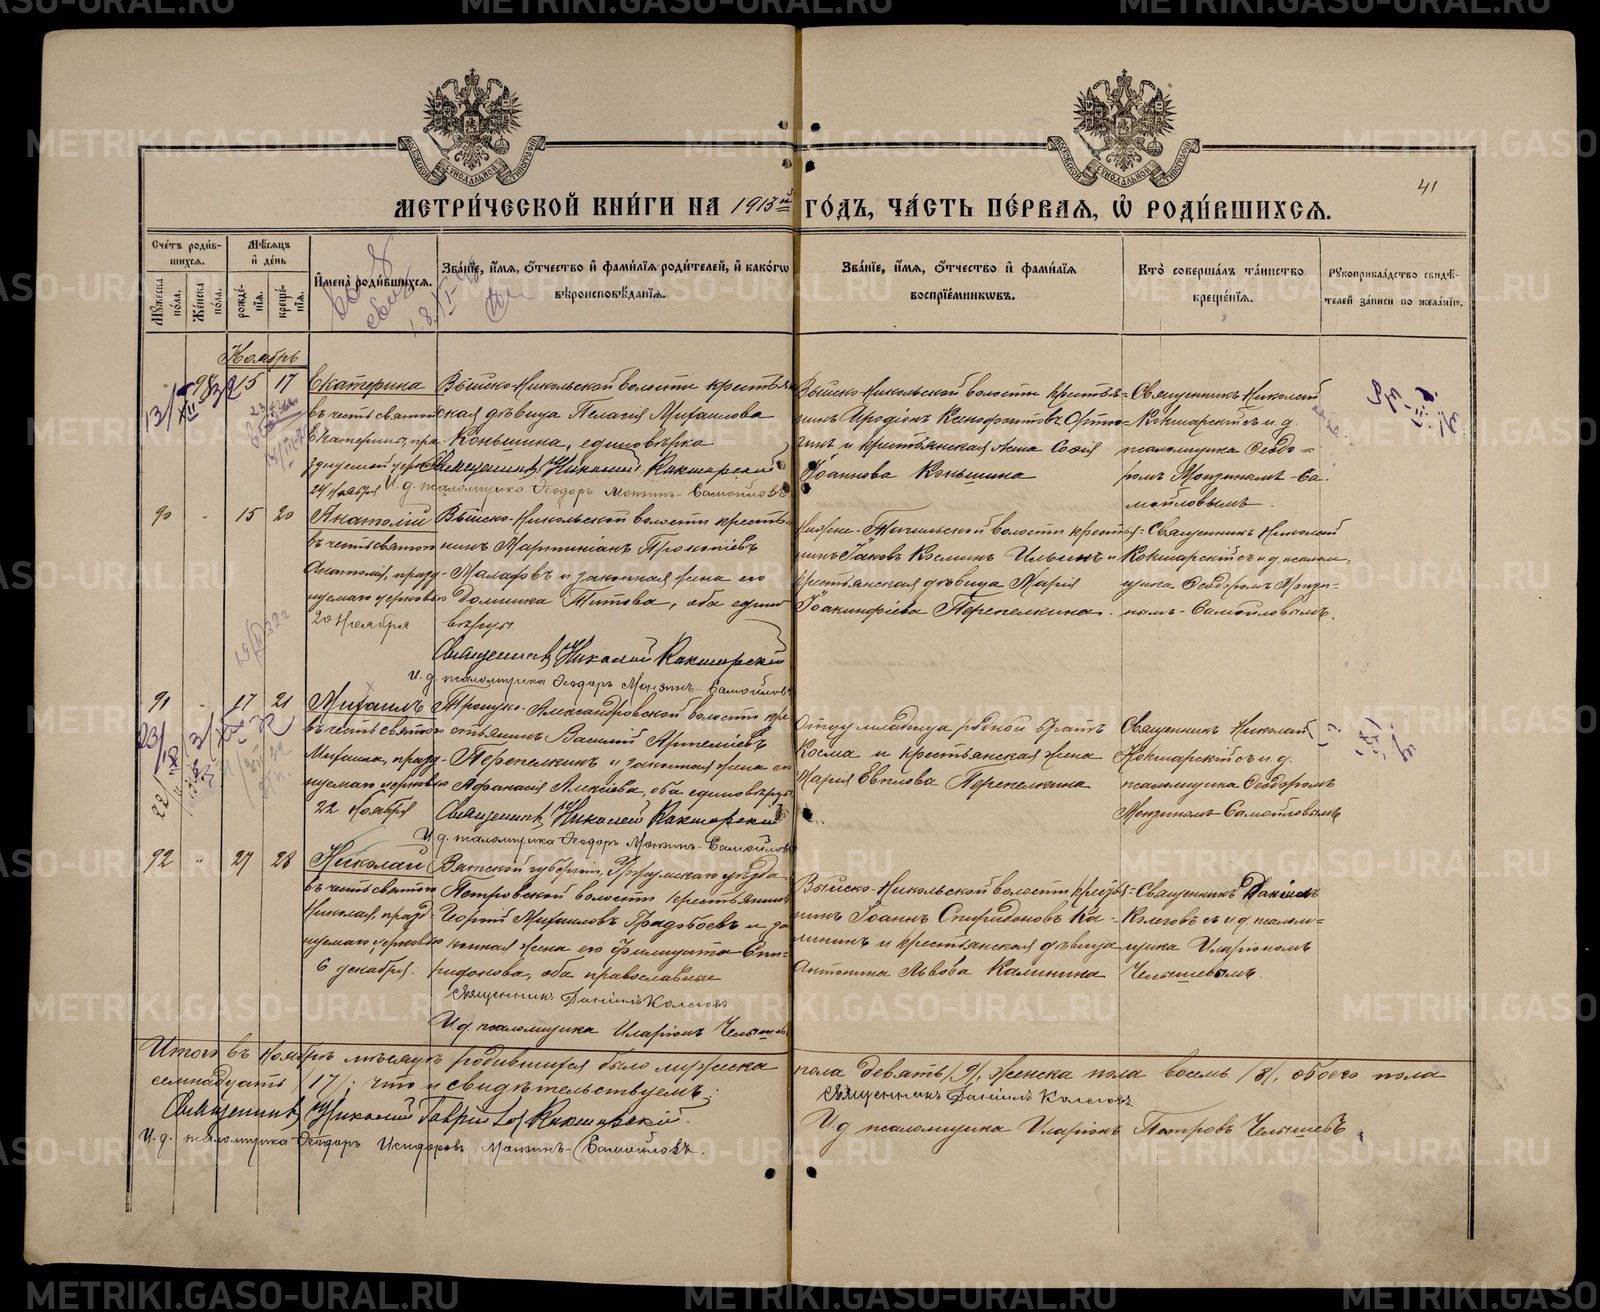 41
МЕТРИ́ЧЕСКОЙ КНИ́ГИ НА 1913й ГО́ДЪ, ЧА́СТЬ ПЕ́РВАЯ, Ѡ РОДИ́ВШИХСЯ.
Сче́тъ роди́в-
шихся.
Мѣ́сяцъ
и де́нь
Му́жеска по́ла.
Же́нска по́ла.
рожде́-
нїя.
креще́-
нїя.
Имена̀ роди́вшихся.
Зва́нїе, и́мя, о́тчество и фами́лїя роди́телей, и како́гѡ
вѣроисповѣ́данїя.
Зва́нїе, и́мя, о́тчество и фами́лїя
воспрїе́мникѡвъ.
Кто̀ соверша́лъ та́инство
креще́нїя.
Рукоприкла́дство свидѣ́-
телей за́писи по жела́нїю.
Ноябрь
15 17
Екатерина
въ честь святой
Екатерины, пра-
зднуемой церк
24 Ноября
Выйско-Никольской волости крестьян
ская дѣвица Пелагія Михаилова
Коньшина, единовѣрка
Священникъ Николай Какшарскій
И. д. псаломщика Ѳеодоръ Монзинъ-Самойловъ
Выйско-Никольской волости крестья-
нинъ Иродіонъ Ксенофонтовъ
и крестьянская жена Софія
Іоаннова Коньшина
Священникъ Николай
Кокшарскій съ и. д.
псаломщика Ѳеодо-
ромъ Монзинымъ-Са-
мойловымъ.
90 " 15 20
Анатолій
въ честь святого
Анатолія, празд-
нуемаго церковью
20 Ноября
Выйско-Никольской волости кресть-
нинъ Мартиніанъ Прокопіевъ
Малаховъ и законная жена его
Домника Титова, оба едино
вѣрцы
Священникъ Николай Какшарскій
И. д. псаломщика Ѳеодоръ Монзинъ-Самойловъ
Нижне-Тагильской волости кресть-
нинъ Іаковъ Космин Ильинъ и
крестьянская дѣвица Марія
Іоакинфіева Перепелкина.
Священникъ Николай
Кокшарскій съ и. д. псалом-
щика Ѳеодоромъ Монзи-
нымъ-Самойловымъ.
91 " 17 21
Михаилъ
въ честь святого
Михаила, празд-
нуемаго церковью
22 Ноября
Троицко-Александровской волости кре
стьянинъ Василій Артеміевъ
Перепелкинъ и законная жена его
Афанасія Алексіева, оба единовѣрцы
Священникъ Николай Какшарскій
И. д. псаломщика Ѳеодоръ Монзинъ-Самойловъ
Отцу младенца родной братъ
Косма и крестьянская жена
Марія Евплова Перепелкина
Священникъ Николай
Кокшарскій съ и. д.
псаломщика Ѳеодоромъ
Монзинымъ-Самойловымъ
92 " 27 28
Николай
въ честь святого
Николая, празд-
нуемаго церковью
6 декабря.
Вятской губерніи, Уржумскаго уѣзда
Петровской волости крестьянинъ
Георгій Михаиловъ Градобоевъ и за
конная жена его Филицата Спи-
ридонова, оба православные
Священникъ Даніилъ Колеговъ
И. д. псаломщика Иларіонъ Челышевъ
Выйско-Никольской волости кресть-
нинъ Іоаннъ Спиридоновъ Ка-
лининъ и крестьянская дѣвица
Антонина Львова Калинина
Священникъ Даніилъ
Колеговъ съ и. д. псалом-
щика Иларіономъ
Челышевымъ.
Итого въ Ноябрѣ мѣсяцѣ родившихся было мужеска
пола девять /9/, женска пола восемь /8/, обоего пола
семнадцать /17/; что и свидѣтельствуемъ:
Священникъ Николай Гавриловъ Какшарскій.
И. д. псаломщика Ѳеодоръ Исидоровъ Монзинъ-Самойловъ.
Священникъ Даніилъ Колеговъ
И. д. псаломщика Иларіонъ Петровъ Челышевъ
METRIKI.GASO-URAL.RU